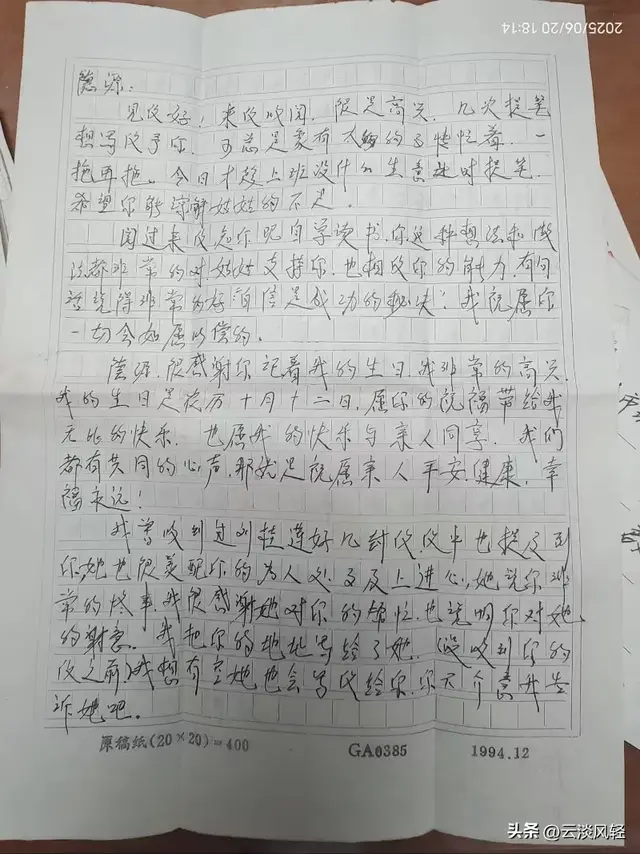 2025/06/20 18:14
德源:
见信好!来信收阅,很是高兴,几次提笔
想写信予你,可总是家有太多的事情忙着,一
拖再拖,今日才趁上班没什么生意此时提笔,
希望你能谅解姐姐的不足。
阅过来信知你现自学读书,你这种想法和做
法都非常的对姐姐支持你,也相信你的能力,有句
话说得非常的好“自信是成功的秘决”!我祝愿你
一切会如愿以偿的。
德源,很感谢你记着我的生日,我非常的高兴,
我的生日是农历十月十二日,愿你的祝福带给我
无比的快乐,也愿我的快乐与亲人同享,我们
都有共同的心声,那就是祝愿亲人平安、健康、幸
福永远!
我曾收到过刘桂莲好几封信信中也提及到
你,她也很佩你的为人处事及上进心,她说你非
常的懂事,我很感谢她对你的帮忙,也说明你对她
的谢意。我把你的地址写给了她。(没收到你的
信之前)我想有空她也会写信给你,你不介意我告
诉她吧。
原稿纸(20×20)=400 GA0385 1994.12
头条 @云淡风轻